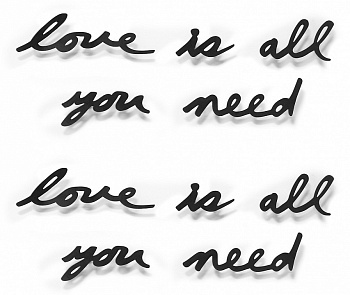 love is all
you need
love is all
you need